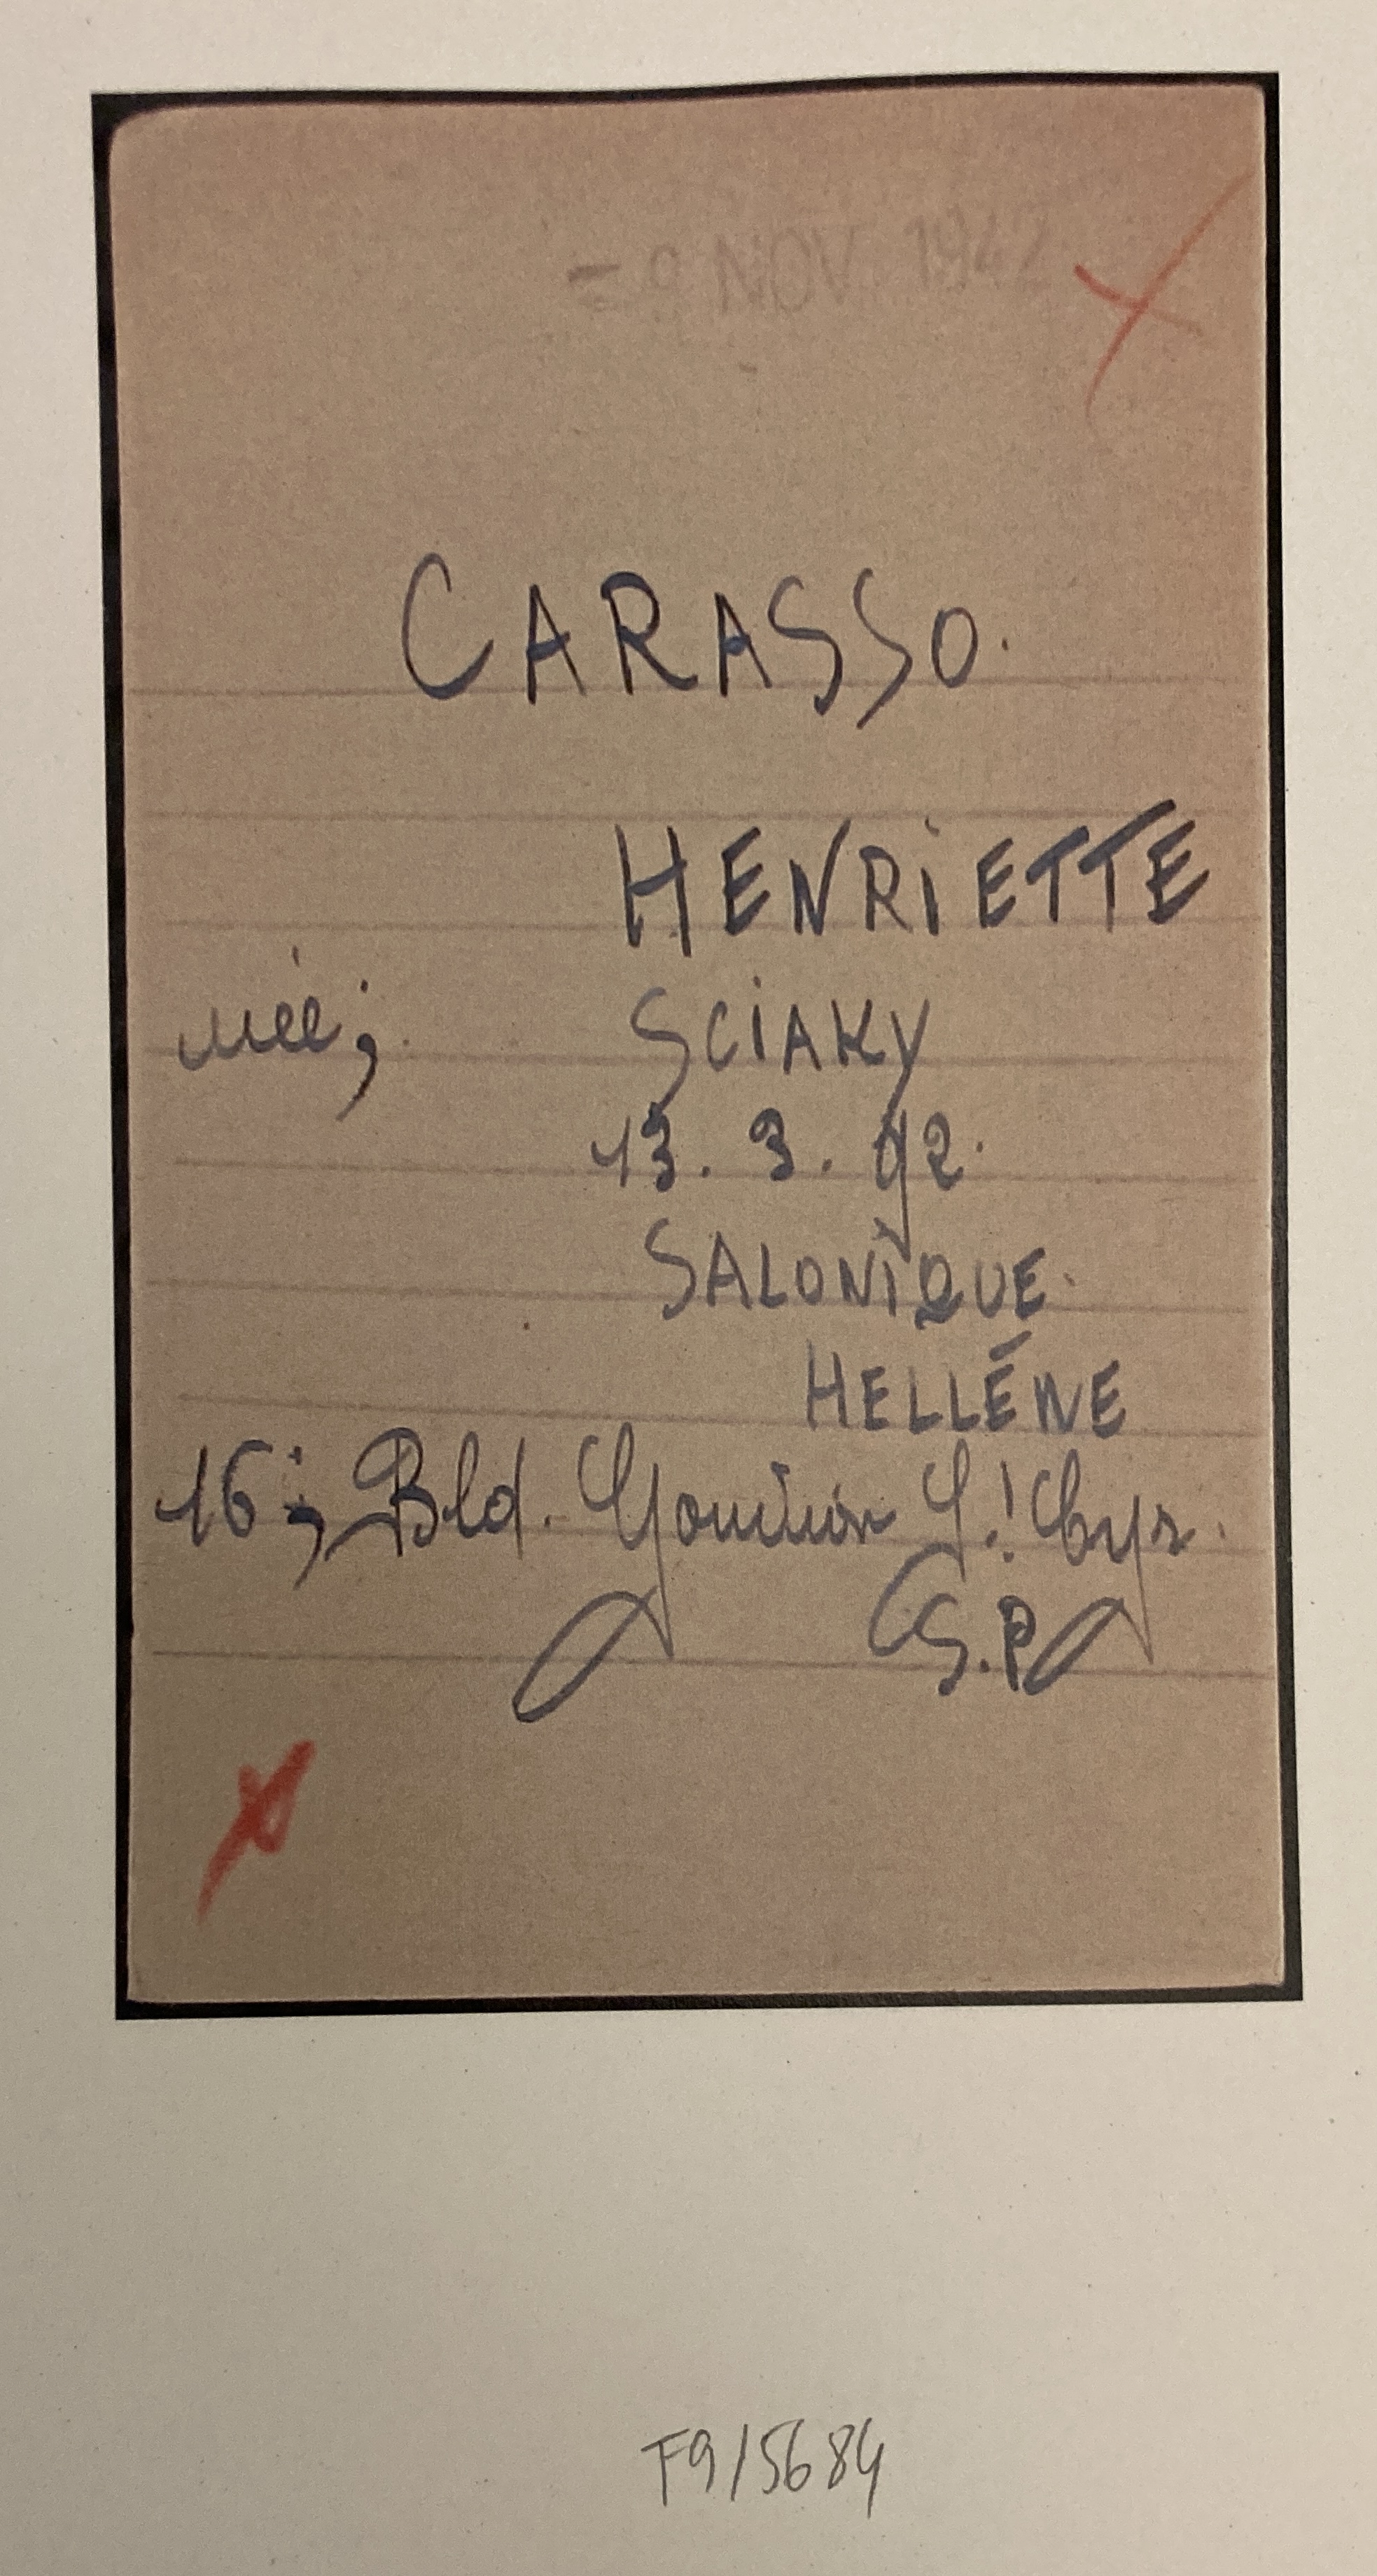 - 9 NOV. 1942
CARASSO.
HENRIETTE
née; SCIAKY
13. 3. 92.
SALONIQUE.
HELLÉNE
16; Bld. Gouvion St Cyr.
S.P
F9/5684